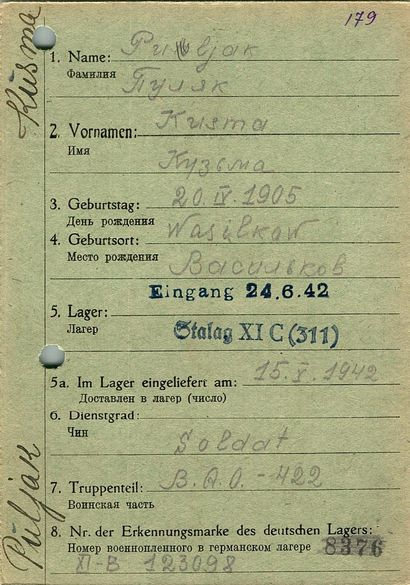 179
Kusma
1. Name: Puljak
Фамилия Пуляк
2. Vornamen: Kusma
Имя
Кузьма
3. Geburtstag: 20. IV. 1905
День рождения
4. Geburtsort: Wasilkow
Место рождения
Васильков
Eingang 24.6.42
5. Lager:
Лагер Stalag XI C (311)
5a. Im Lager eingeliefert am: 15. X. 1942
Доставлен в лагер (число)
6. Dienstgrad:
Чин
Soldat
7. Truppenteil: B.A.O. - 422
Воинская часть
8. Nr. der Erkennungsmarke des deutschen Lagers:
Номер военнопленного в германском лагере 8376
XI-B 123098
Puljak